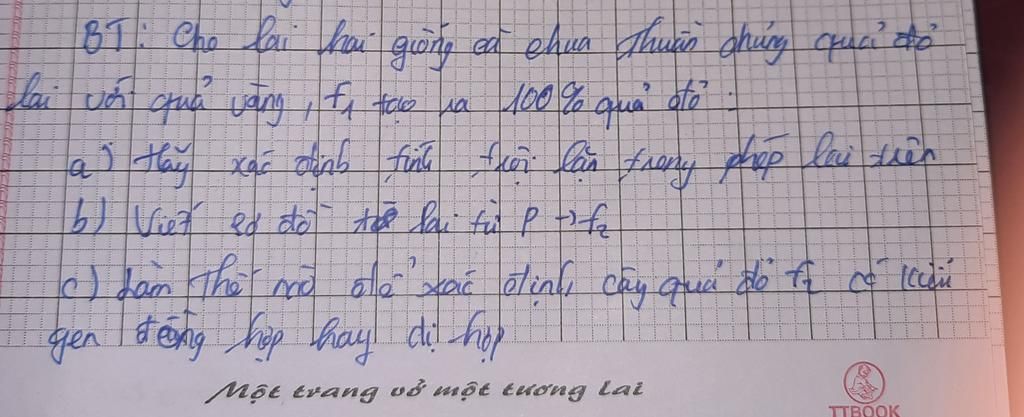 BT: Cho lai hai giống cà chua thuần chủng quả đỏ
lai với quả vàng, f1 tạo ra 100% quả đỏ:
a) Hãy xác định tính trội lặn trong phép lai trên
b) Viết sơ đồ lai từ P → f2
c) Làm thế nào để xác định cây quả đỏ f2 có kiểu
gen đồng hợp hay dị hợp
Một trang vở một tương lai
TTBOOK